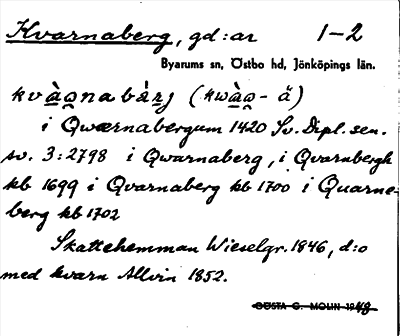 Kvarnaberg, gd:ar 1-2
Byarums sn, Östbo hd, Jönköpings län.
kvàǫnabàrj (kwàǫ- ä)
i Qwærnabergum 1420 Sv. Dipl. sen.
sv. 3:2798 i Qwarnaberg, i Qvarnbergh
kb 1699 i Qvarnaberg kb 1700 i Quarne-
berg kb 1702
Skattehemman Wieselgr. 1846, d:o
med kvarn Allvin 1852.
GÖSTA G. MOLIN 1948